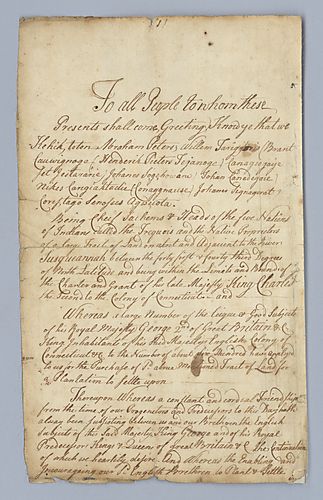 To all People to whom these
Presents shall come Greeting, Know ye that we
Abraham Peters, William
Brant
Hendrick Peters
Johannes
Nikes
Being Cheif Sachems & Heads of the five Nations
of Indians Called the Iroquois and the Native Proprietors
of a large Tract of Land on about and Adjacent to the River
Susquannah between the forty first & forty third Degrees
of North Latitude and being within the Limits and Bounds of
the Charter and Grant of his late Majesty King Charles
the Second to the Colony of Connecticut and
Whereas a Large Number of the Leige & Good Subjects
of his Royal Majesty George 2nd of Great Britain &c
King Inhabitants of his said Majestys English Colony of
Connecticut &c to the Number of about five Hundred have applyed
to us for the Purchase of sd above Mentioned Tract of Land for
a Plantation to settle upon
Thereupon Whereas a constant and cordeal Friendship
from the time of our Progenitors and Predecessors to this Day hath
alway been subsisting between us and our Brethren the English
Subjects of said Majesty King George and of his Royal
Predecessors Kings & Queens of Great Britain &c The Continuation
of which we heartily desire And Whereas the Enabling and
Incouraging our sd English Brethren to Plant & Settle